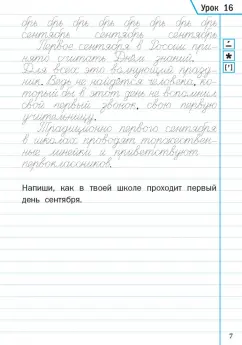 Урок 16
брь брь брь брь брь брь брь
сентябрь сентябрь сентябрь
Первое сентября в России при-
нято считать Днём знаний.
Для всех это волнующий празд-
ник. Ведь не найдётся человека, ко-
торый бы в этот день не вспомнил
свой первый звонок, свою первую
учительницу.
Традиционно первого сентября
в школах проводят торжествен-
ные линейки и приветствуют
первоклассников.
Напиши, как в твоей школе проходит первый
день сентября.
7